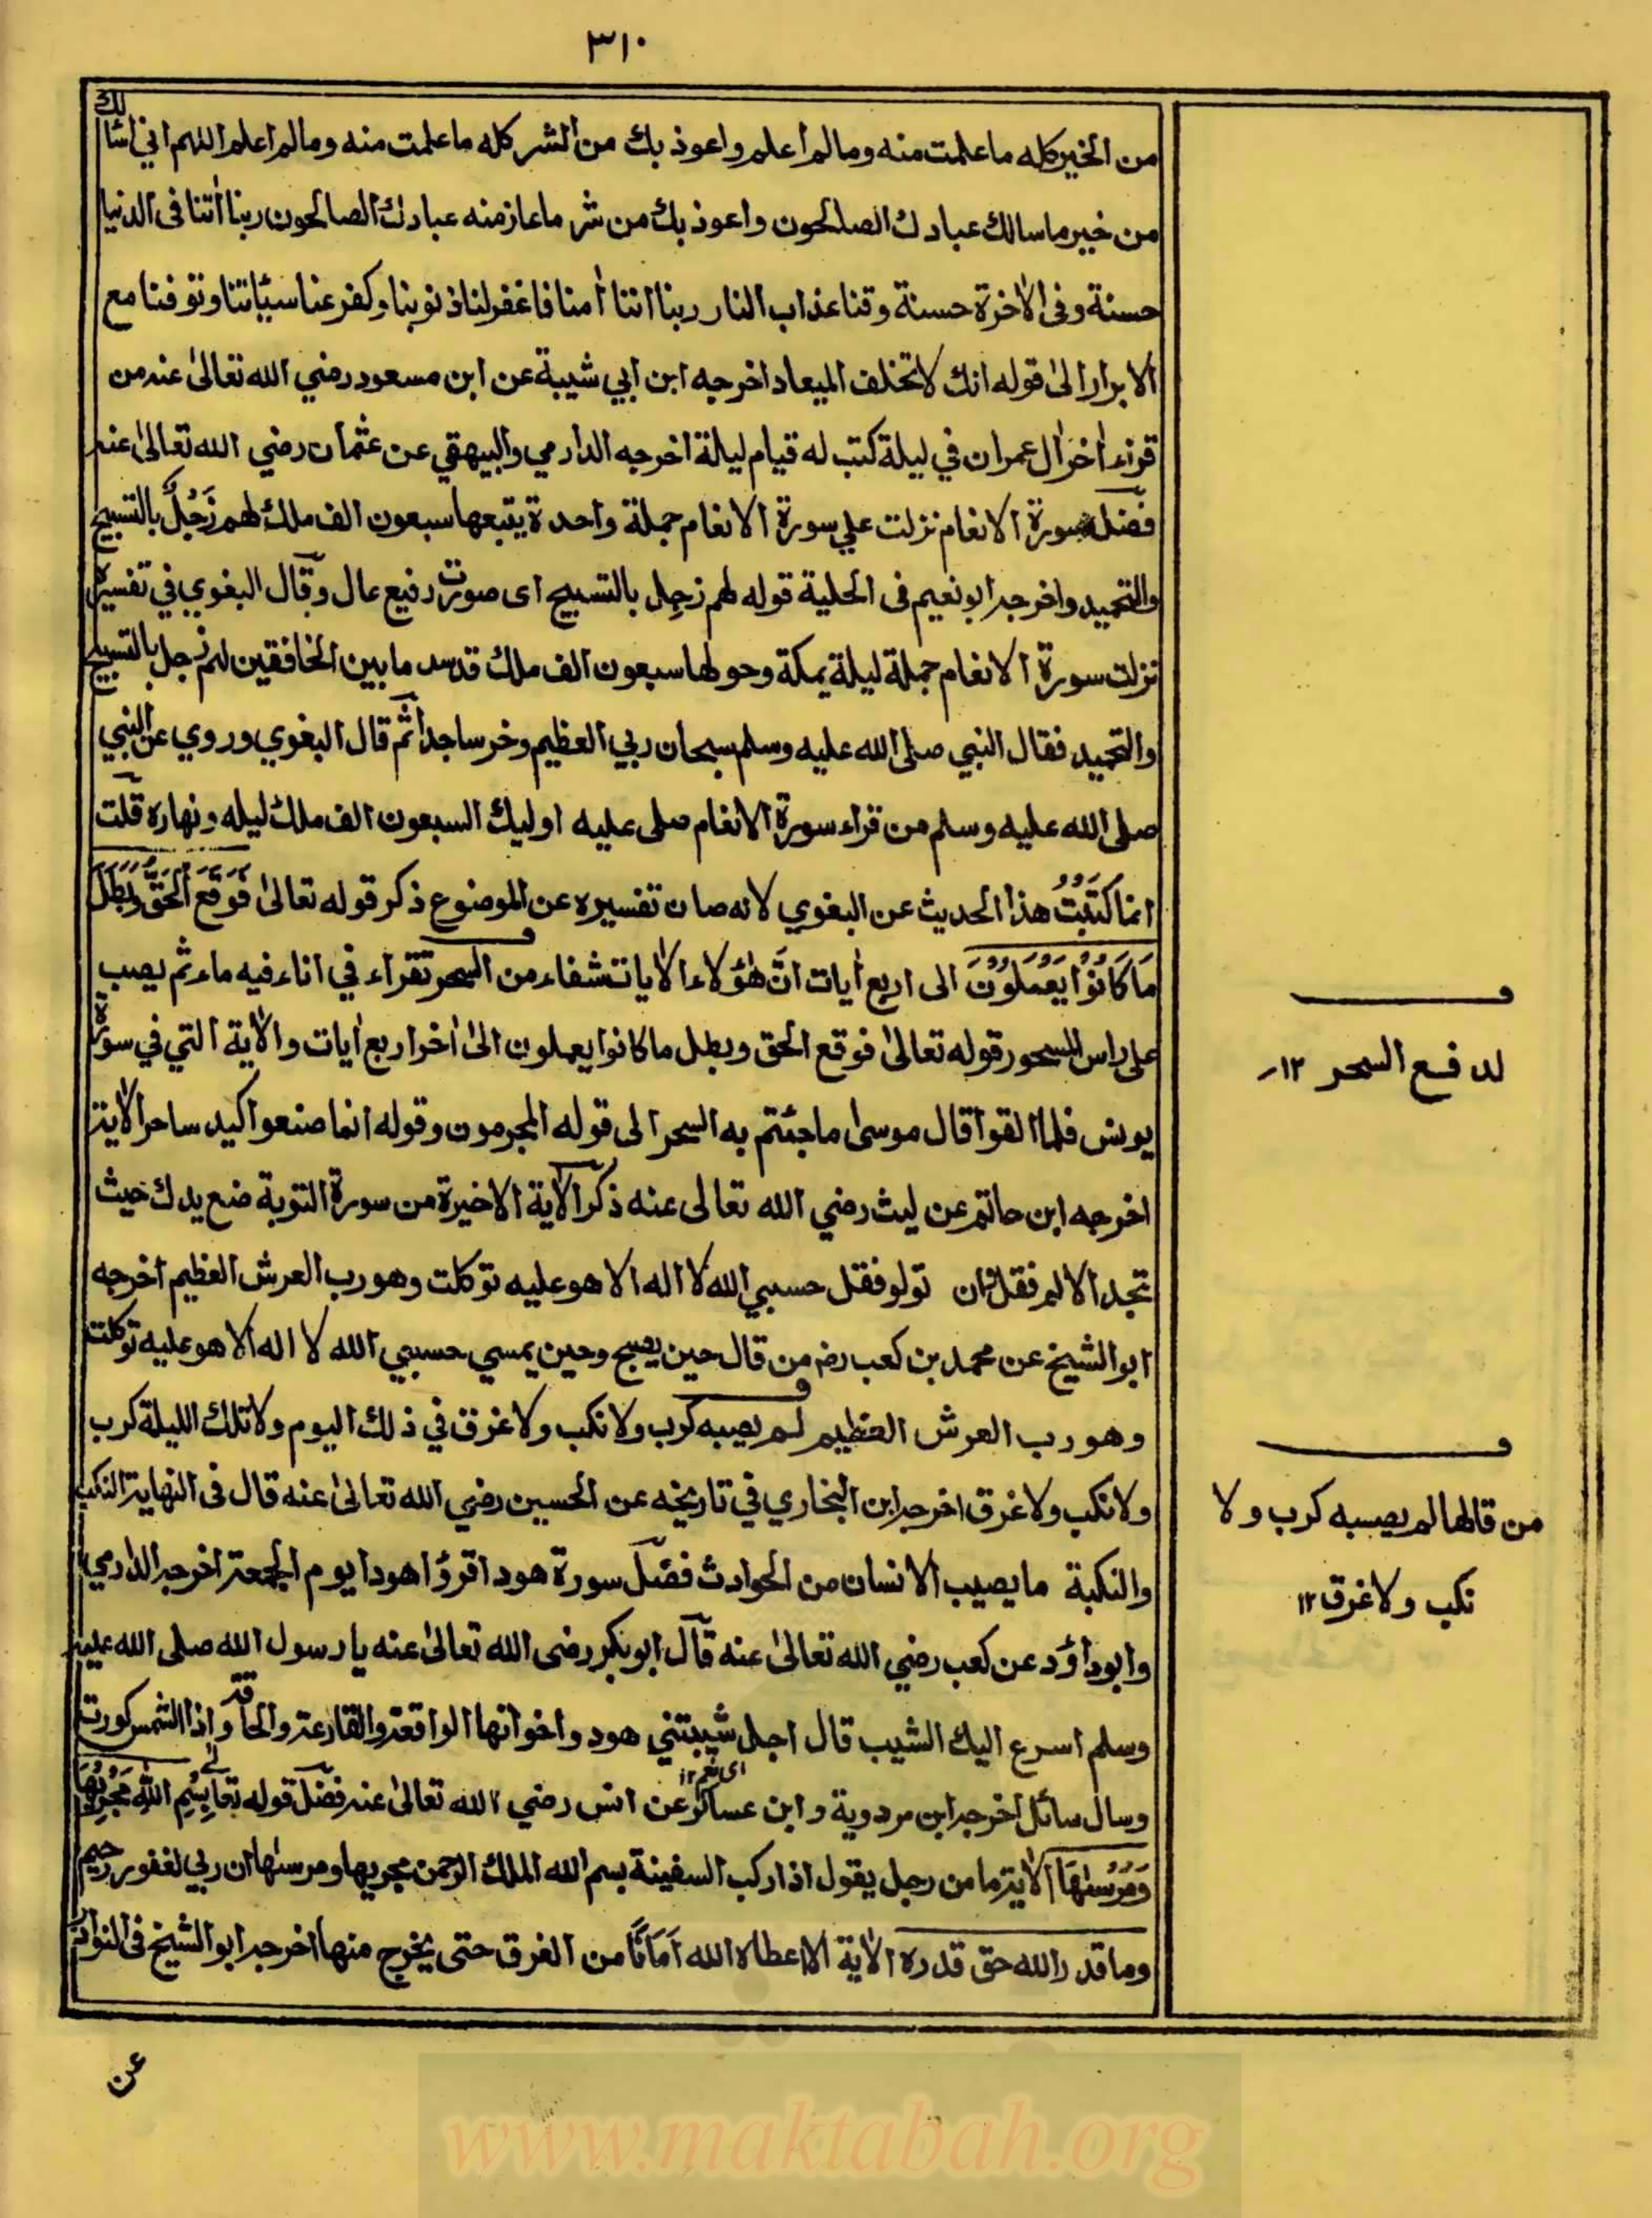 ٣١٠
من الخير كله ما علمت منه وما لم اعلم واعوذ بك من الشر كله ما علمت منه وما لم اعلم اللهم اني اسالك
من خير ما سالك عبادك الصلحون واعوذ بك من شر ما عاز منه عبادك الصالحون ربنا أتنا فى الدنيا
حسنة وفى الأخرة حسنة وقنا عذاب النار ربنا اننا أمنا فاغفرلنا ذنوبنا وكفر عنا سيئاتنا وتوفنا مع
الابرار الى قوله انك لا تخلف الميعاد اخرجه ابن ابي شيبة عن ابن مسعود رضي الله تعالى عنه من
قرء أخر أل عمران في ليلة كتب له قيام ليلة اخرجه الدارمي والبيهقي عن عثمان رضي الله تعالى عنه
فضل سورة الانعام نزلت علي سورة الانعام جملة واحدة يتبعها سبعون الف ملك لهم زَجُلٌ بالتسبيح
والتحميد واخرجه ابو نعيم فى الحلية قوله لهم زجل بالتسبيح اى صوت رفيع عال وقال البغوي في تفسيره
نزلت سورة الانعام جملة ليلة بمكة وحولها سبعون الف ملك قد سد ما بين الخافقين لهم زجل بالتسبيح
والتحميد فقال النبي صلى الله عليه وسلم سبحان ربي العظيم وخر ساجدا ثم قال البغوي وروي عن النبي
صلى الله عليه وسلم من قراء سورة الانعام صلى عليه اوليك السبعون الف ملك ليله ونهاره قلت
انما كَتَبْتُ هذا الحديث عن البغوي لانه صان تفسيره عن الموضوع ذكر قوله تعالى فَوَقَعَ الْحَقُّ وَبَطَلَ
مَا كَانُوْا يَعْمَلُوْنَ الى اربع أيات انّ هؤلاء الأيات شفاء من السحر تقراء في اناء فيه ماء ثم يصب
على راس المسحور قوله تعالى فوقع الحق وبطل ما كانوا يعملون الى أخر اربع أيات والأية التي في سورة
يونس فلما القوا قال موسى ما جئتم به السحر الى قوله المجرمون وقوله انما صنعوا كيد ساحر الأية
اخرجه ابن حاتم عن ليث رضي الله تعالى عنه ذكر الأية الاخيرة من سورة التوبة ضع يدك حيث
تجد الالم فقل فان تولو فقل حسبي الله لا اله الا هو عليه توكلت وهو رب العرش العظيم اخرجه
ابو الشيخ عن محمد بن كعب رضـ من قال حين يصبح وحين يمسي حسبي الله لا اله الا هو عليه توكلت
وهو رب العرش العظيم لم يصيبه كرب ولا نكب ولا غرق في ذلك اليوم ولا تلك الليلة كرب
ولا نكب ولا غرق اخرجه ابن البخاري في تاريخه عن الحسين رضي الله تعالى عنه قال فى النهاية النكب
والنكبة ما يصيب الانسان من الحوادث فضل سورة هود اقرؤا هودا يوم الجمعة اخرجه الدارمي
وابوداؤد عن كعب رضي الله تعالى عنه قال ابوبكر رضى الله تعالى عنه يا رسول الله صلى الله عليه
وسلم اسرع اليك الشيب قال اجل شيبتني هود واخواتها الواقعة والقارعة والحاقة واذا الشمس كورت
وسال سائل اخرجه ابن مردوية وابن عساكر عن انس رضي الله تعالى عنه فضل قوله تعالى بِسْمِ اللهِ مَجْرٖىهَا
وَمُرْسٰىهَا الأية ما من رجل يقول اذا ركب السفينة بسم الله الملك الرحمن مجريها ومرسها ان ربي لغفور رحيم
وما قدر الله حق قدره الأية الا اعطاه الله اَمَانًا من الغرق حتى يخرج منها اخرجه ابو الشيخ فى
عن
فـ
لدفع السحر ١٢
فـ
من قالها لم يصيبه كرب ولا
نكب ولا غرق ١٢
www.maktabah.org